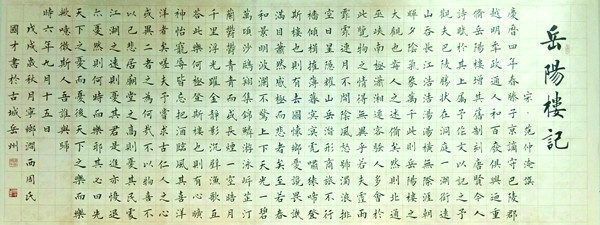 岳陽樓記
宋·范仲淹撰
慶曆四年春滕子京謫守巴陵郡
越明年政通人和百廢俱興迺重
修岳陽樓增其舊制刻唐賢今人
詩賦於其上屬予作文以記之予
觀夫巴陵勝狀在洞庭一湖銜遠
山吞長江浩浩湯湯橫無際涯朝
暉夕陰氣象萬千此則岳陽樓之
大觀也前人之述備矣然則北通
巫峽南極瀟湘遷客騷人多會於
此覽物之情得無異乎若夫霪雨
霏霏連月不開陰風怒號濁浪排
空日星隱耀山岳潛形商旅不行
檣傾楫摧薄暮冥冥虎嘯猿啼登
斯樓也則有去國懷鄉憂讒畏譏
滿目蕭然感極而悲者矣至若春
和景明波瀾不驚上下天光一碧
萬頃沙鷗翔集錦鱗游泳岸芷汀
蘭鬱鬱青青而或長煙一空皓月
千里浮光躍金靜影沉璧漁歌互
答此樂何極登斯樓也則有心曠
神怡寵辱皆忘把酒臨風其喜洋
洋者矣嗟夫予嘗求古仁人之心
或異二者之為何哉不以物喜不
以己悲居廟堂之高則憂其民處
江湖之遠則憂其君是進亦憂退
亦憂然則何時而樂耶其必曰先
天下之憂而憂後天下之樂而樂
歟噫微斯人吾誰與歸
時六年九月十五日
戊戌歲秋月寧鄉澗西周氏
國才書於古城岳州